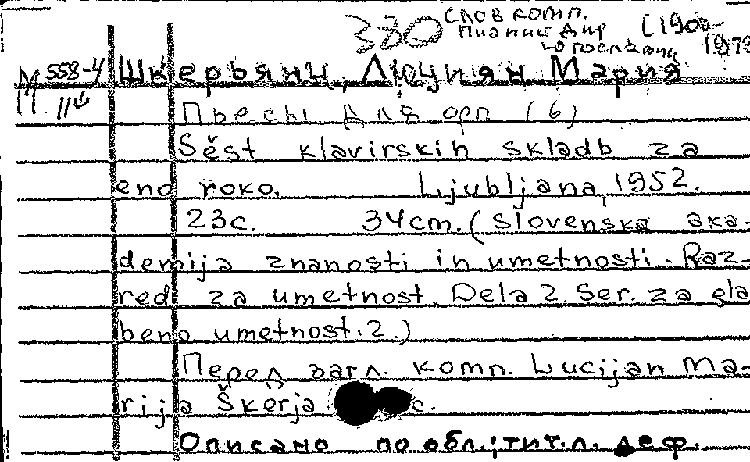 330 слов комп.
пианист, дир (1900-
югослав 1973
М 558-4 Шкерьянц, Люциян Мария
11
Пьесы для орп (6)
Šest klavirskih skladb za
eno roko. Ljubljana, 1952.
23с. 34cm. (Slovenska aka-
demija znanosti in umetnosti. Raz-
red za umetnost. Dela 2. Ser. za gla
beno umetnost. 2.)
Перед загл. комп. Lucijan Ma-
rija Škerja c.
Описано по обл.; тит. л. деф.